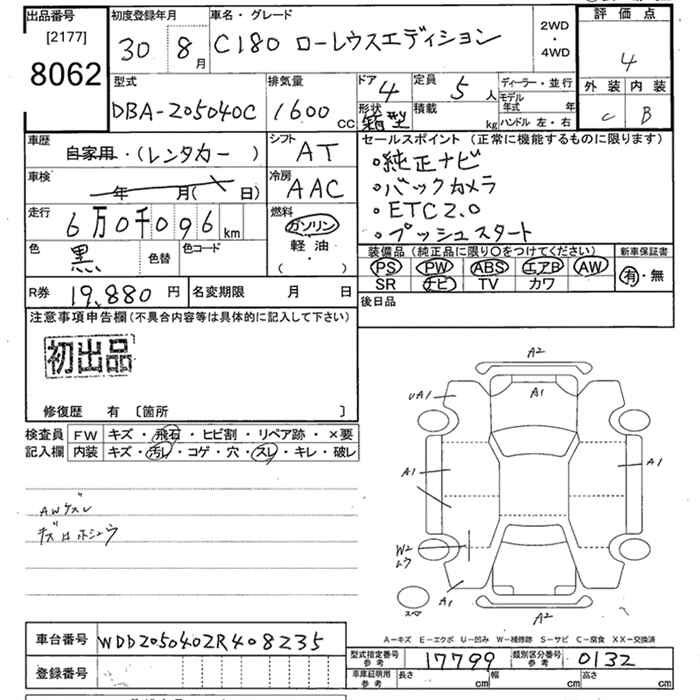 出品番号
[2177]
8062
初度登録年月
30 8月
車名・グレード
C180 ローレウスエディション
2WD
・
4WD
評価点
4
外装 内装
C B
型式
DBA-205040C
排気量
1600 cc
ドア 4
形状 箱型
定員 5人
積載 kg
ディーラー・並行
モデル年式 年
ハンドル 左・右
車歴
自家用・(レンタカー )
シフト
AT
車検
年 月( 日)
冷房
AAC
走行
6万0千096km
燃料
ガソリン
軽油・
( )
色
黒
色替
色コード
R券 19,880円
名変期限 月 日
セールスポイント (正常に機能するものに限ります)
○純正ナビ
○バックカメラ
○ETC2.0
○プッシュスタート
装備品(純正品に限り○をつけてください)
PS PW ABS エアB AW
SR ナビ TV カワ
新車保証書
有・無
後日品
注意事項申告欄(不具合内容等は具体的に記入して下さい)
初出品
修復歴 有 〔箇所 〕
検査員記入欄
FW キズ・飛石・ヒビ割・リペア跡・×要
内装 キズ・汚レ・コゲ・穴・スレ・キレ・破レ
AWケズレ
キズ
A2
A1
UA1
A1
A1
W2
ムラ
A1
スペア
A2
A-キズ E-エクボ U-凹み W-補修跡 S-サビ C-腐食 XX-交換済
車台番号 WDD2050402R408235
登録番号
型式指定番号 参考 17799
類別区分番号 参考 0132
車庫証明用 参考 長さ cm 幅 cm 高さ cm